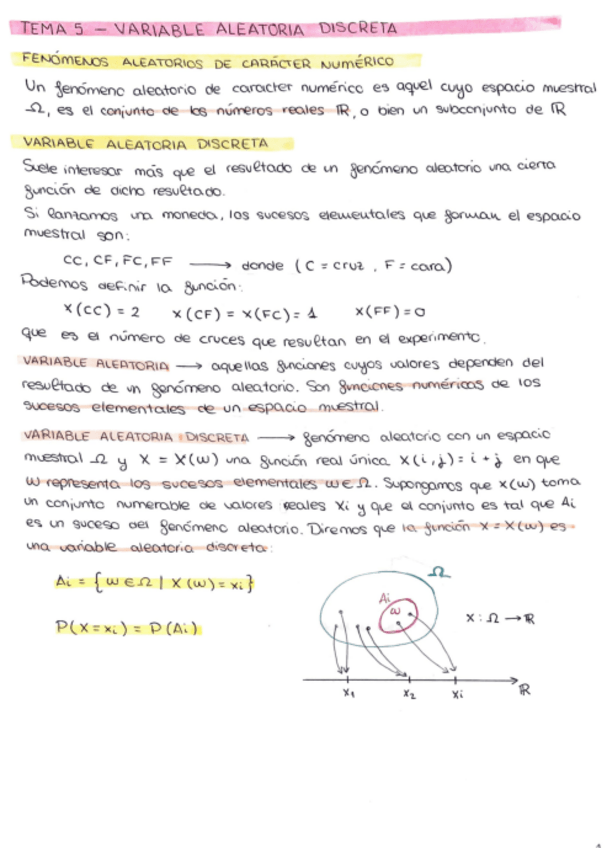 TEMA 5 - VARIABLE ALEATORIA DISCRETA
FENÓMENOS ALEATORIOS DE CARÁCTER NUMÉRICO
Un fenómeno aleatorio de caracter numérico es aquel cuyo espacio muestral
Ω, es el conjunto de los números reales ℝ, o bien un subconjunto de ℝ
VARIABLE ALEATORIA DISCRETA
Suele interesar más que el resultado de un fenómeno aleatorio una cierta
función de dicho resultado.
Si lanzamos una moneda, los sucesos elementales que forman el espacio
muestral son:
CC, CF, FC, FF → donde (C = cruz, F = cara)
Podemos definir la función:
X(CC) = 2 X(CF) = X(FC) = 1 X(FF) = 0
que es el número de cruces que resultan en el experimento.
VARIABLE ALEATORIA → aquellas funciones cuyos valores dependen del
resultado de un fenómeno aleatorio. Son funciones numéricas de los
sucesos elementales de un espacio muestral.
VARIABLE ALEATORIA DISCRETA → fenómeno aleatorio con un espacio
muestral Ω y X = X(ω) una función real única X(i,j) = i + j en que
ω representa los sucesos elementales ω ∈ Ω. Supongamos que X(ω) toma
un conjunto numerable de valores reales Xi y que el conjunto es tal que Ai
es un suceso del fenómeno aleatorio. Diremos que la función X = X(ω) es
una variable aleatoria discreta:
Ai = {ω ∈ Ω | X(ω) = xi}
P(X = xi) = P(Ai)
Ω
Ai
ω
X : Ω → ℝ
X₁ X₂ Xi ℝ